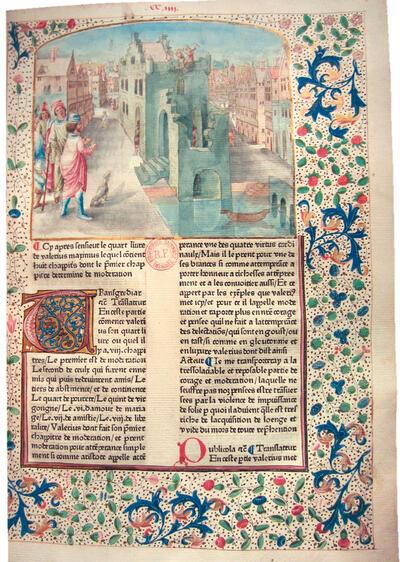 .xx.iiii.
Cy apres sensieut le quart liure
de valerius maximus le quel cõtient
huit chapitres dont le p̃mier chap
pitre determine de moderation
Transgrediar
rc̃. Translateur
En ceste partie
cõmence valeri
us son quart li
ure ou quel il
y a. viij. chapi
tres/ Le premier est de moderation
Le second de ceulx qui furent enne
mis qui puis redeuinrent amis/ Le
tiers de abstinence/ et de continence
Le quart de pourete/ Le quint de ver
gongne/ Le vi. damour de maria
ge/ Le. vij. de amistie/ Le. viij. de libe
ralite/ Valerius dont fait son p̃mier
chapitre de moderation/ et prent
moderation pour attẽprance simple
ment si comme aristote appelle attẽ
prance vne des quatre virtus cardi
naulx/ Mais il le prent pour vne de
ses brances si comme attemprãce a
porter honneur a richesses attẽpree
ment et a les conuoitier aussi/ Et ce
appert par les exẽples que valer̃
met icy/ et pour ce il lapelle mode
ration et raporte plus en nr̃e corage
et pensee quil ne fait a lattemprãce
des delectaciõs/ qui sont en goust/ ou
en tast/ si comme en gloutonnie et
en luxure valerius dont dist ainsi
Acteur Je me transporteray a la
tresloable et reposable partie de
corage et moderation/ laquelle ne
seuffre pas noz pensees estre trauersz
ees par la violence de impuissance
de folie p quoi il aduient q̃lle est tres
riche de lacquisition de loenge et
vuide du mors de toute rep̃hention
Publicola rc̃ Translateur
En ceste p̃tie valerius met
R.F.